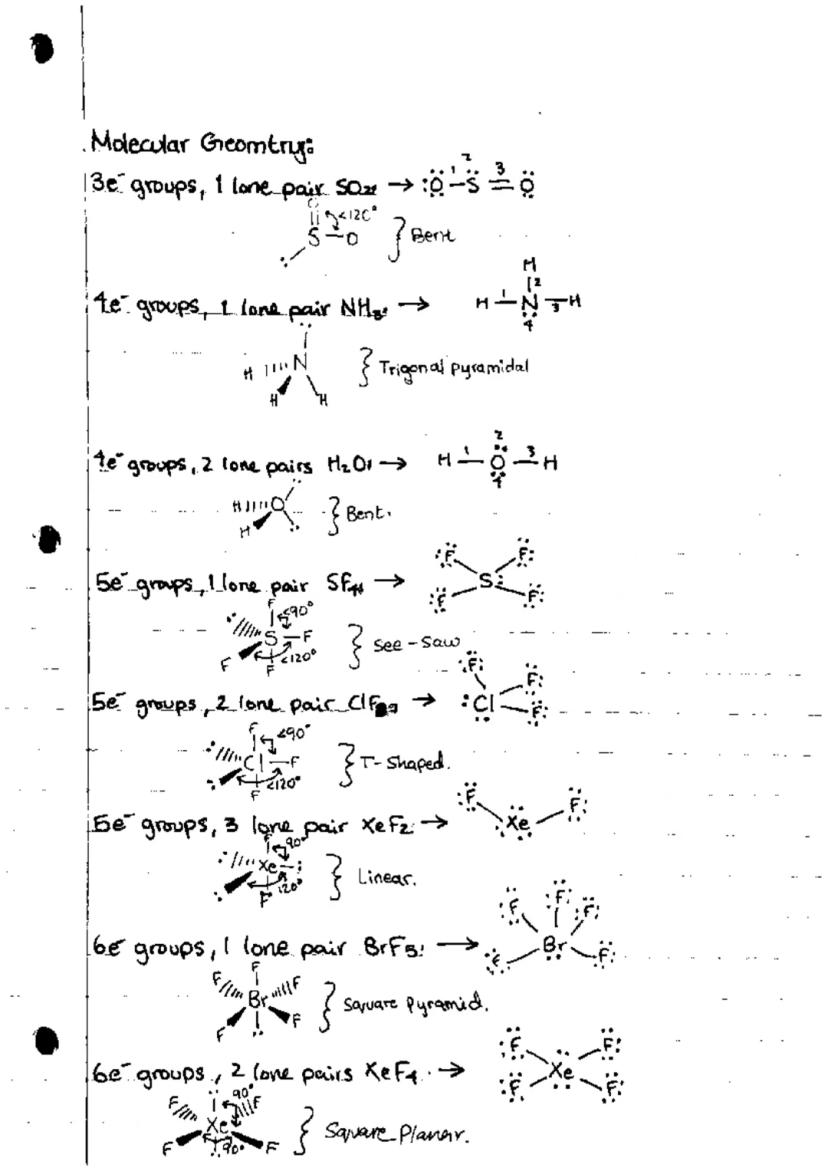 Molecular Geomtry:
3e⁻ groups, 1 lone pair SO2: → :Ö-S̈=Ö
1 2 3
O
<120°
S-O
Bent
H
4e⁻ groups, 1 lone pair NH3: → H-N̤-H
1 2 3 4
H N
H H
Trigonal pyramidal
4e⁻ groups, 2 lone pairs H2O: → H-O-H
1 2 3 4
H O
H
Bent.
F F
5e⁻ groups, 1 lone pair SF4: → S:
F F
F <90°
S-F
F F <120°
See-Saw
F
F
5e⁻ groups, 2 lone pair ClF3: → :Cl
F
F <90°
Cl-F
F <120°
T-Shaped.
F F
5e⁻ groups, 3 lone pair XeF2: → Xe
F 90°
Xe
F 120°
Linear.
F F F
6e⁻ groups, 1 lone pair BrF5: → Br
F F
F
F F
Br
F F
Square Pyramid.
F F
6e⁻ groups, 2 lone pairs XeF4. → Xe
F F
90°
F F
Xe
F 90° F
Square Planar.